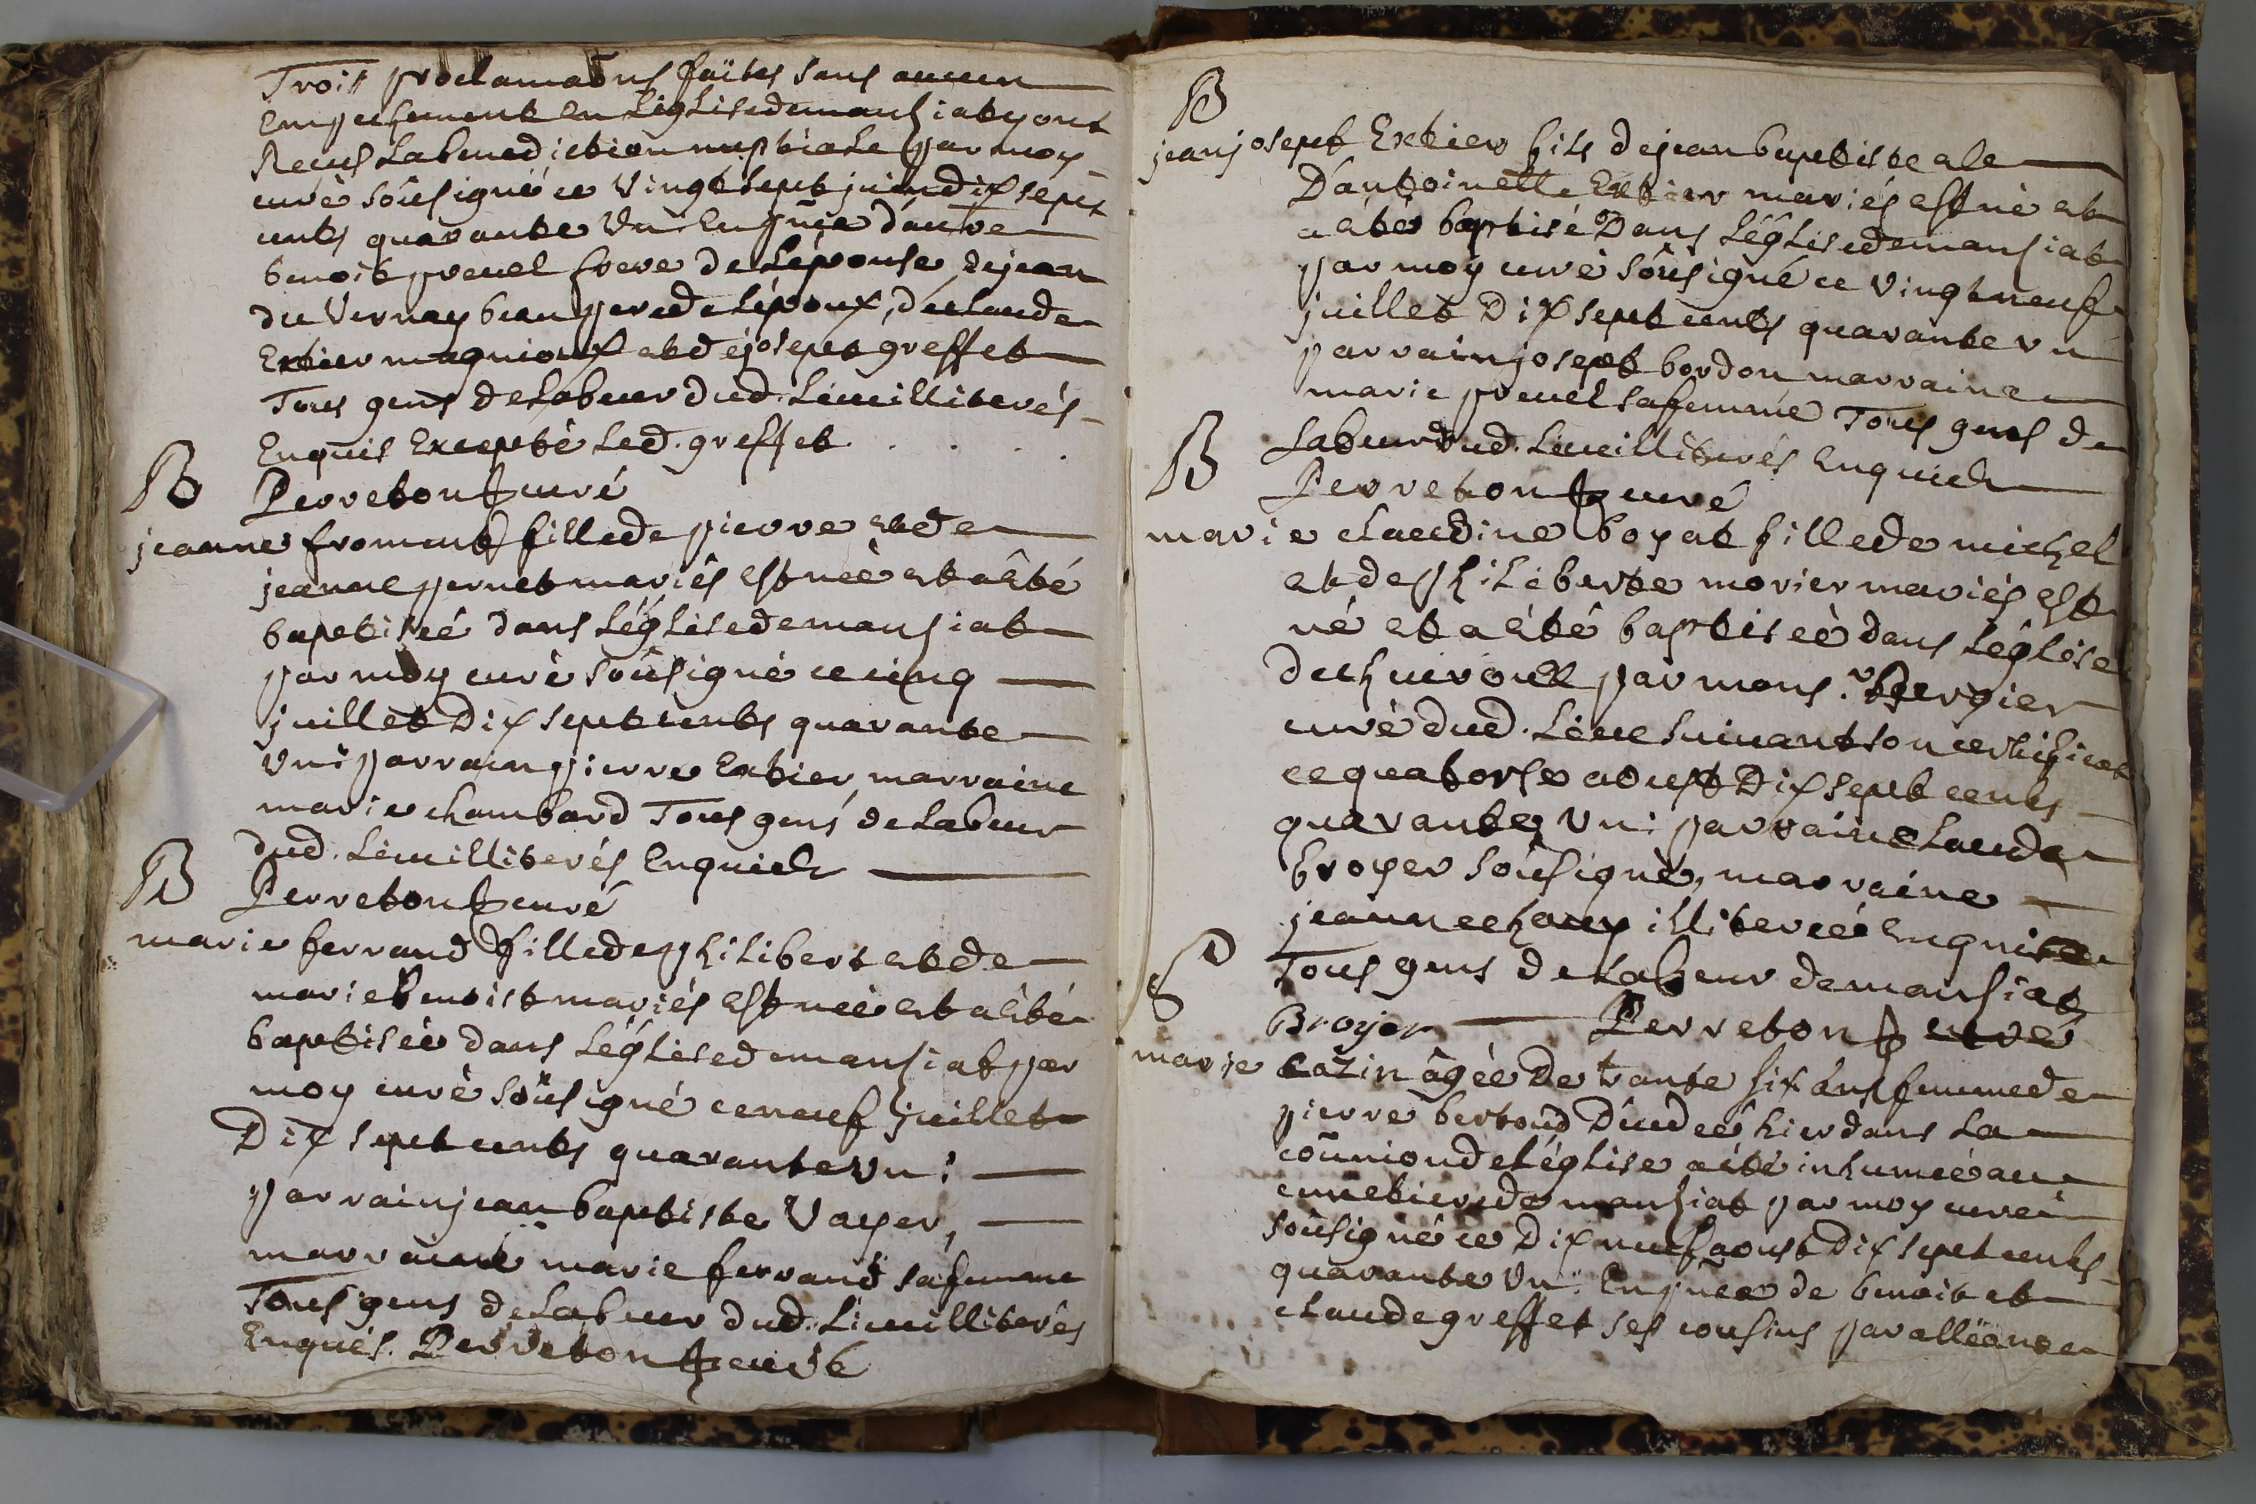 Trois proclamaõns faites sans aucun
Empechement en L'eglise de mansiat y ont
Receus La benediction nuptiale par moy
curé soûsigné ce vingt sept juin dix sept
cents quarante Un En pñce d'antre
benoit preuel frere de L'épouse, de jean
du Vernay beau pere de L'époux, de claude
Extier magnioux et de josept greffet
Tous gens de Labeur dud. Lieu illiterés
Enquis Excepté Led. greffet . . . .
B
Perreton curé
jeanne froment fille de pierre et de
jeanne pernet mariés est neé et a êté
baptiseé dans L'église de mansiat
par moy curé soûsigné ce cinq
juillet Dix sept cents quarante
Un: parrain pierre Extier, marraine
marie chambard Tous gens de Labeur
dud. Lieu illiterés Enquich
B
Perreton curé
marie ferrand fille de philibert et de
marie Benoist mariés est neé et a êté
baptiseé dans L'église de mansiat par
moy curé soûsigné ce neuf juillet
Dix sept cents quarante Un:
parrain jean baptiste Vayer,
marraine marie ferrand sa femme
Tous gens de Labeur dud. Lieu illiterés
Enqués. Perreton curé
B
jean josept Extier fils de jean baptiste ale
D'antoinette Extier mariés est né et
a eté baptisé Dans L'église de mansiat
par moy curé soûsigné ce vingt neuf
juillet Dix sept cents quarante vn
parrain josept bordon marraine
marie preuel sa femme Tous gens de
Labeur dud. Lieu illiterés Enquich
B
Perreton curé
marie claudine boyat fille de michel
et de philiberte morier mariés est
né et a êté baptiseé dans L'église
de chevroux par mons.r Bergier
curé dud. Lieu suivant son certificat
ce quatorse aoust Dix sept cents
quarante Un: parrain claude
broyer soûsigné, marraine
jeanne chouy illitereé Enquise
Tous gens de Labeur de mansiat
Broyer Perreton curé
S
marie cazin âgeé De trante six ans femme de
pierre bertoud Décedeé hier dans La
coñunion de L'église a été inhumeé au
cimetiere de mansiat par moy curé
soûsigné ce Dix neuf aoust Dix sept cents
quarante Un: En pñce de benoit et
claude greffet ses cousins par alléance